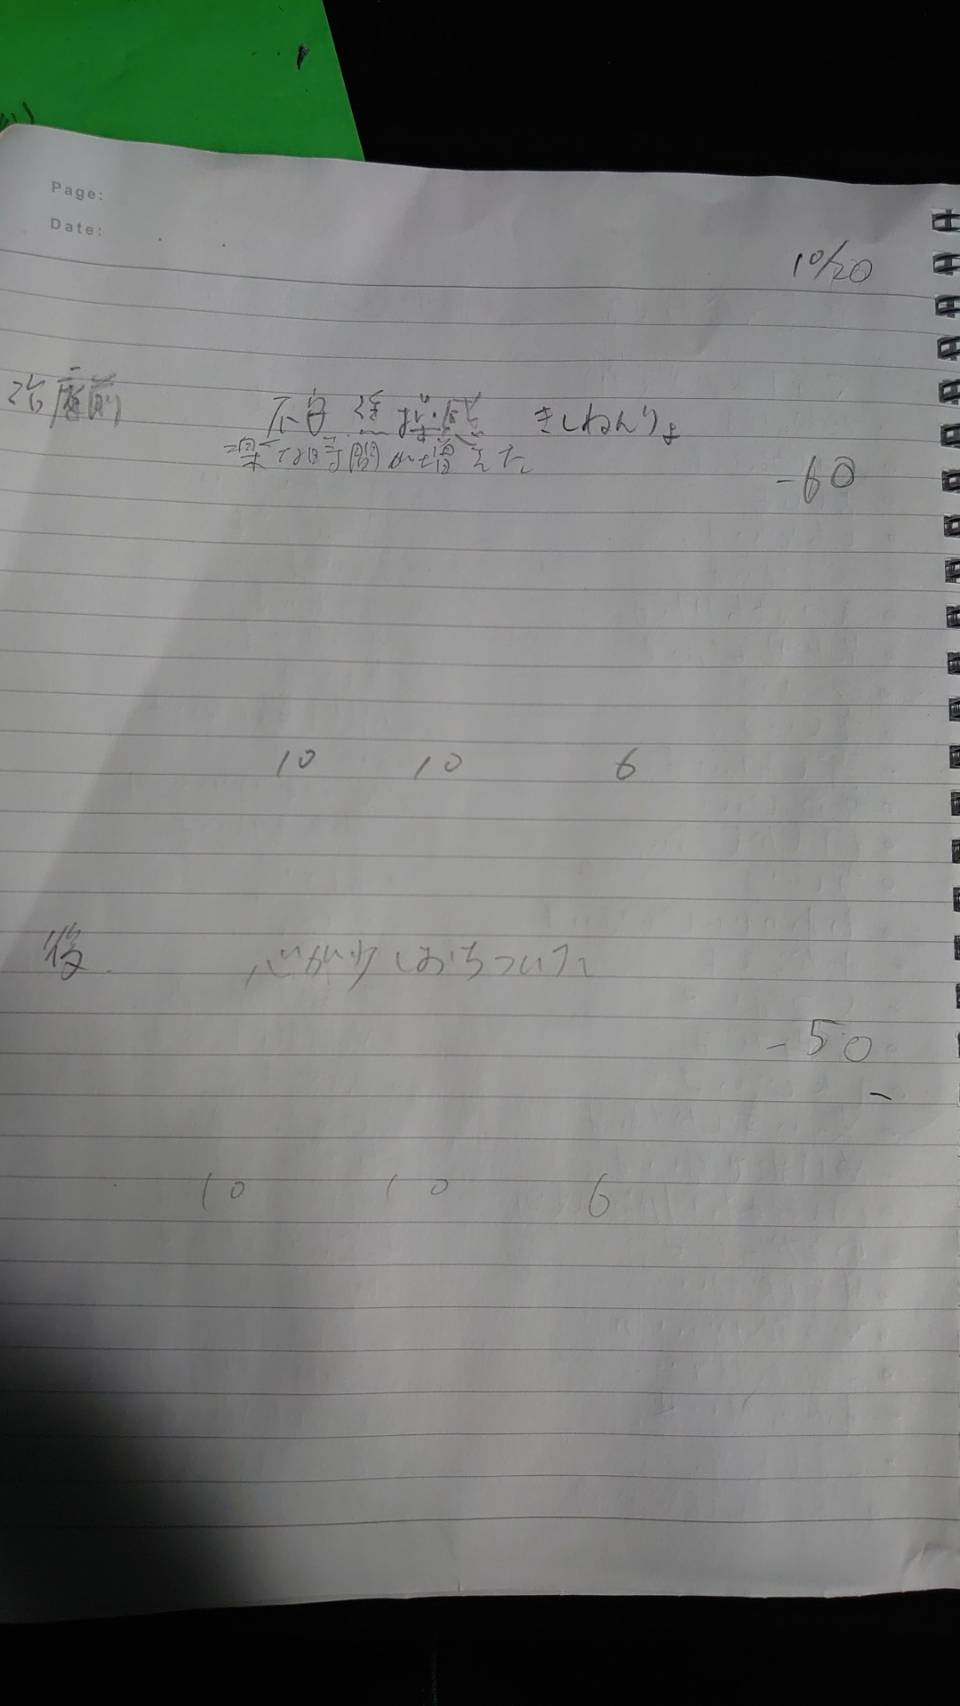 Page:
Date:
10/20
治療前
不自然接感 きしねんりょ
楽な時間が増えた
-60
10 10 6
後
心が少しおちついた
-50
10 10 6